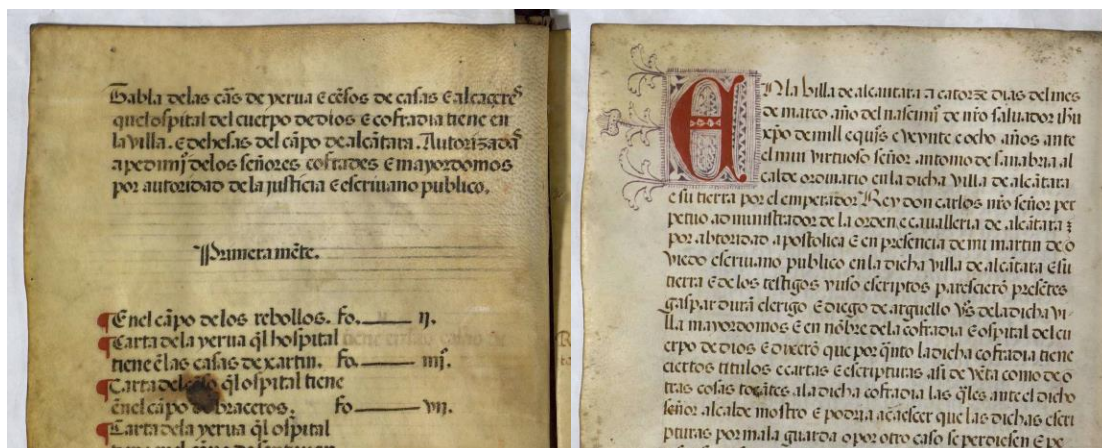 Tabla delas cãs de yerua e cẽsos de casas e alcaçeres
quel ospital del cuerpo de dios e cofradia tiene en
la villa. e dehesas del cãpo de alcãtara. Autorizada
a pedimiº delos señores cofrades e mayordomos
por autoridad de la justicia e escriuano publico.
Primera mẽte.
Enel cãpo de los rebollos. fo. ij.
Carta dela yerua q̃l hospital
tiene ẽlas casas de xartin. fo. iiij.
Carta del q̃l ospital tiene
ẽnel cãpo de braceros. fo vij.
Carta dela yerua q̃l ospital
EN la billa de alcantara a catorze dias del mes
de março año del nasçimiº de nr̃o saluador ihu
xpo de mill e quis̃ e veynte e ocho años ante
el muy virtuoso señor antonio de sanabria al
calde ordinario en la dicha villa de alcãtara
e su tierra por el emperador Rey don carlos nr̃o señor per
petuo administrador de la orden e caualleria de alcãtara
por abtoridad apostolica e en presencia de mi martin de o
viedo escriuano publico en la dicha villa de alcãtara e su
tierra e de los testigos yuso escriptos paresciẽrõ presẽtes
gaspar durã clerigo e diego de arguello vs̃ dela dicha vi
lla mayordomos e en nõbre dela cofradia e ospital del cu
erpo de dios e dixerõ que por q̃nto la dicha cofradia tiene
ciertos titulos e cartas e escripturas asi de vẽta como de o
tras cosas tocãtes ala dicha cofradia las q̃les ante el dicho
señor alcalde mostro e podria acaescer que las dichas escri
pturas por mala guarda o por otro caso se perdiesen e pe